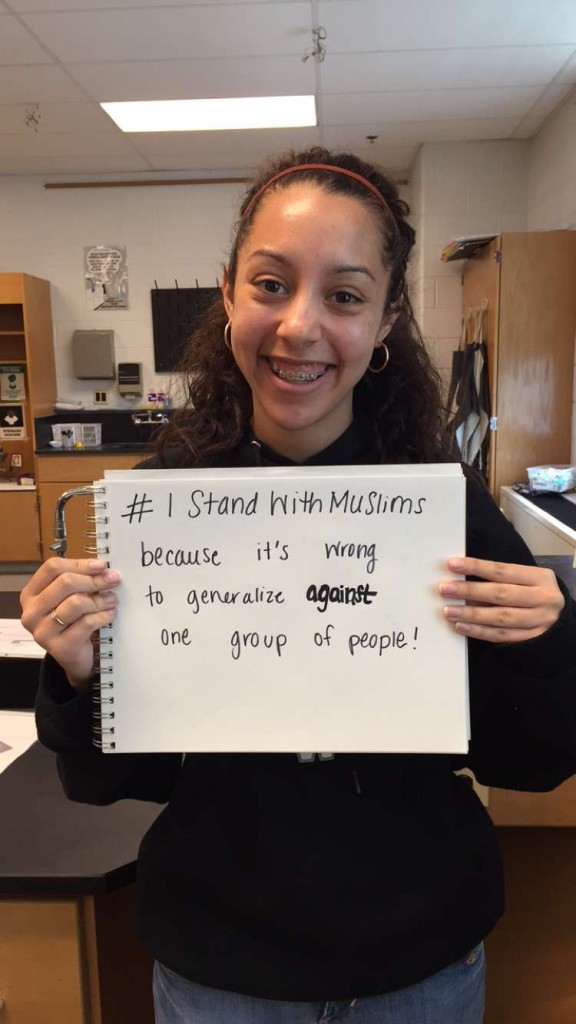 # I Stand With Muslims
because it's wrong
to generalize against
one group of people!